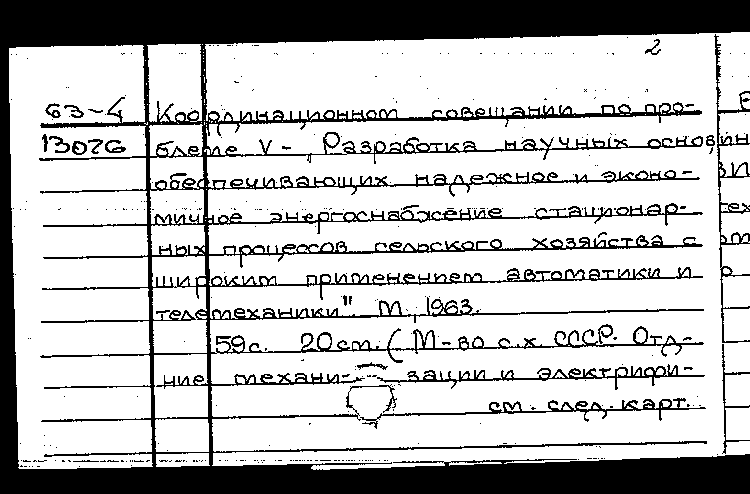 2
63-4 Координационном совещании по про-
13026 блеме V - „Разработка научных основ,
обеспечивающих надежное и эконо-
мичное энергоснабжение стационар-
ных процессов сельского хозяйства с
широким применением автоматики и
телемеханики". М., 1963.
59с. 20см. (М-во с.х. СССР. Отд-
ние механи- зации и электрифи-
см. след. карт.